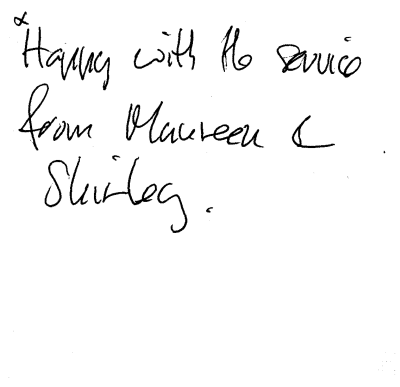 Happy with the service
from Maureen &
Shirley.